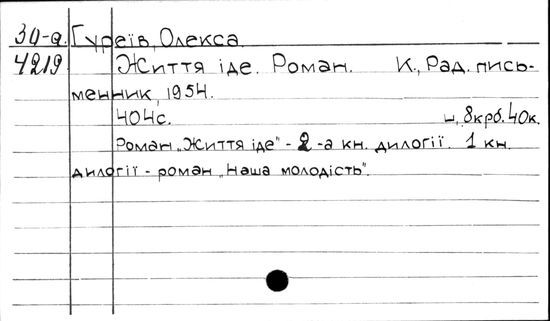 30-а. Гуреїв, Олекса.
4219. Життя іде. Роман. К., Рад. пись-
менник, 1954.
404с. ц, 8крб. 40к.
Роман „Життя іде" - 2-а кн. дилогії. 1 кн.
дилогії - роман „Наша молодість".